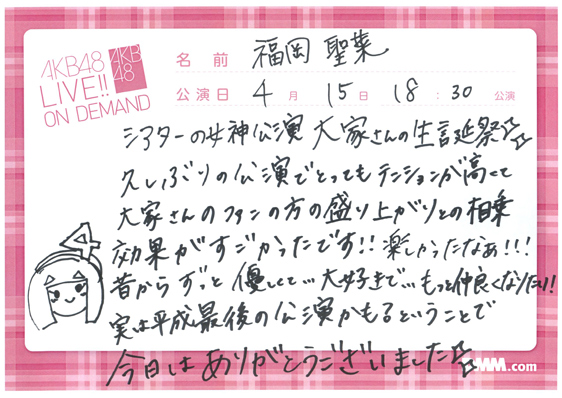 AKB48
LIVE!!
ON DEMAND
AKB
48
名前 福岡 聖菜
公演日 4月 15日 18:30 公演
シアターの女神公演 大家さんの生誕祭☆☆
久しぶりの公演でとってもテンションが高くて
大家さんのファンの方の盛り上がりとの相乗
効果がすごかったです!! 楽しかったなあ!!!
昔からずっと優しくて…大好きで…もっと仲良くなりたい!!
実は平成最後の公演かもるということで
今日はありがとうございました☆
DMM.com